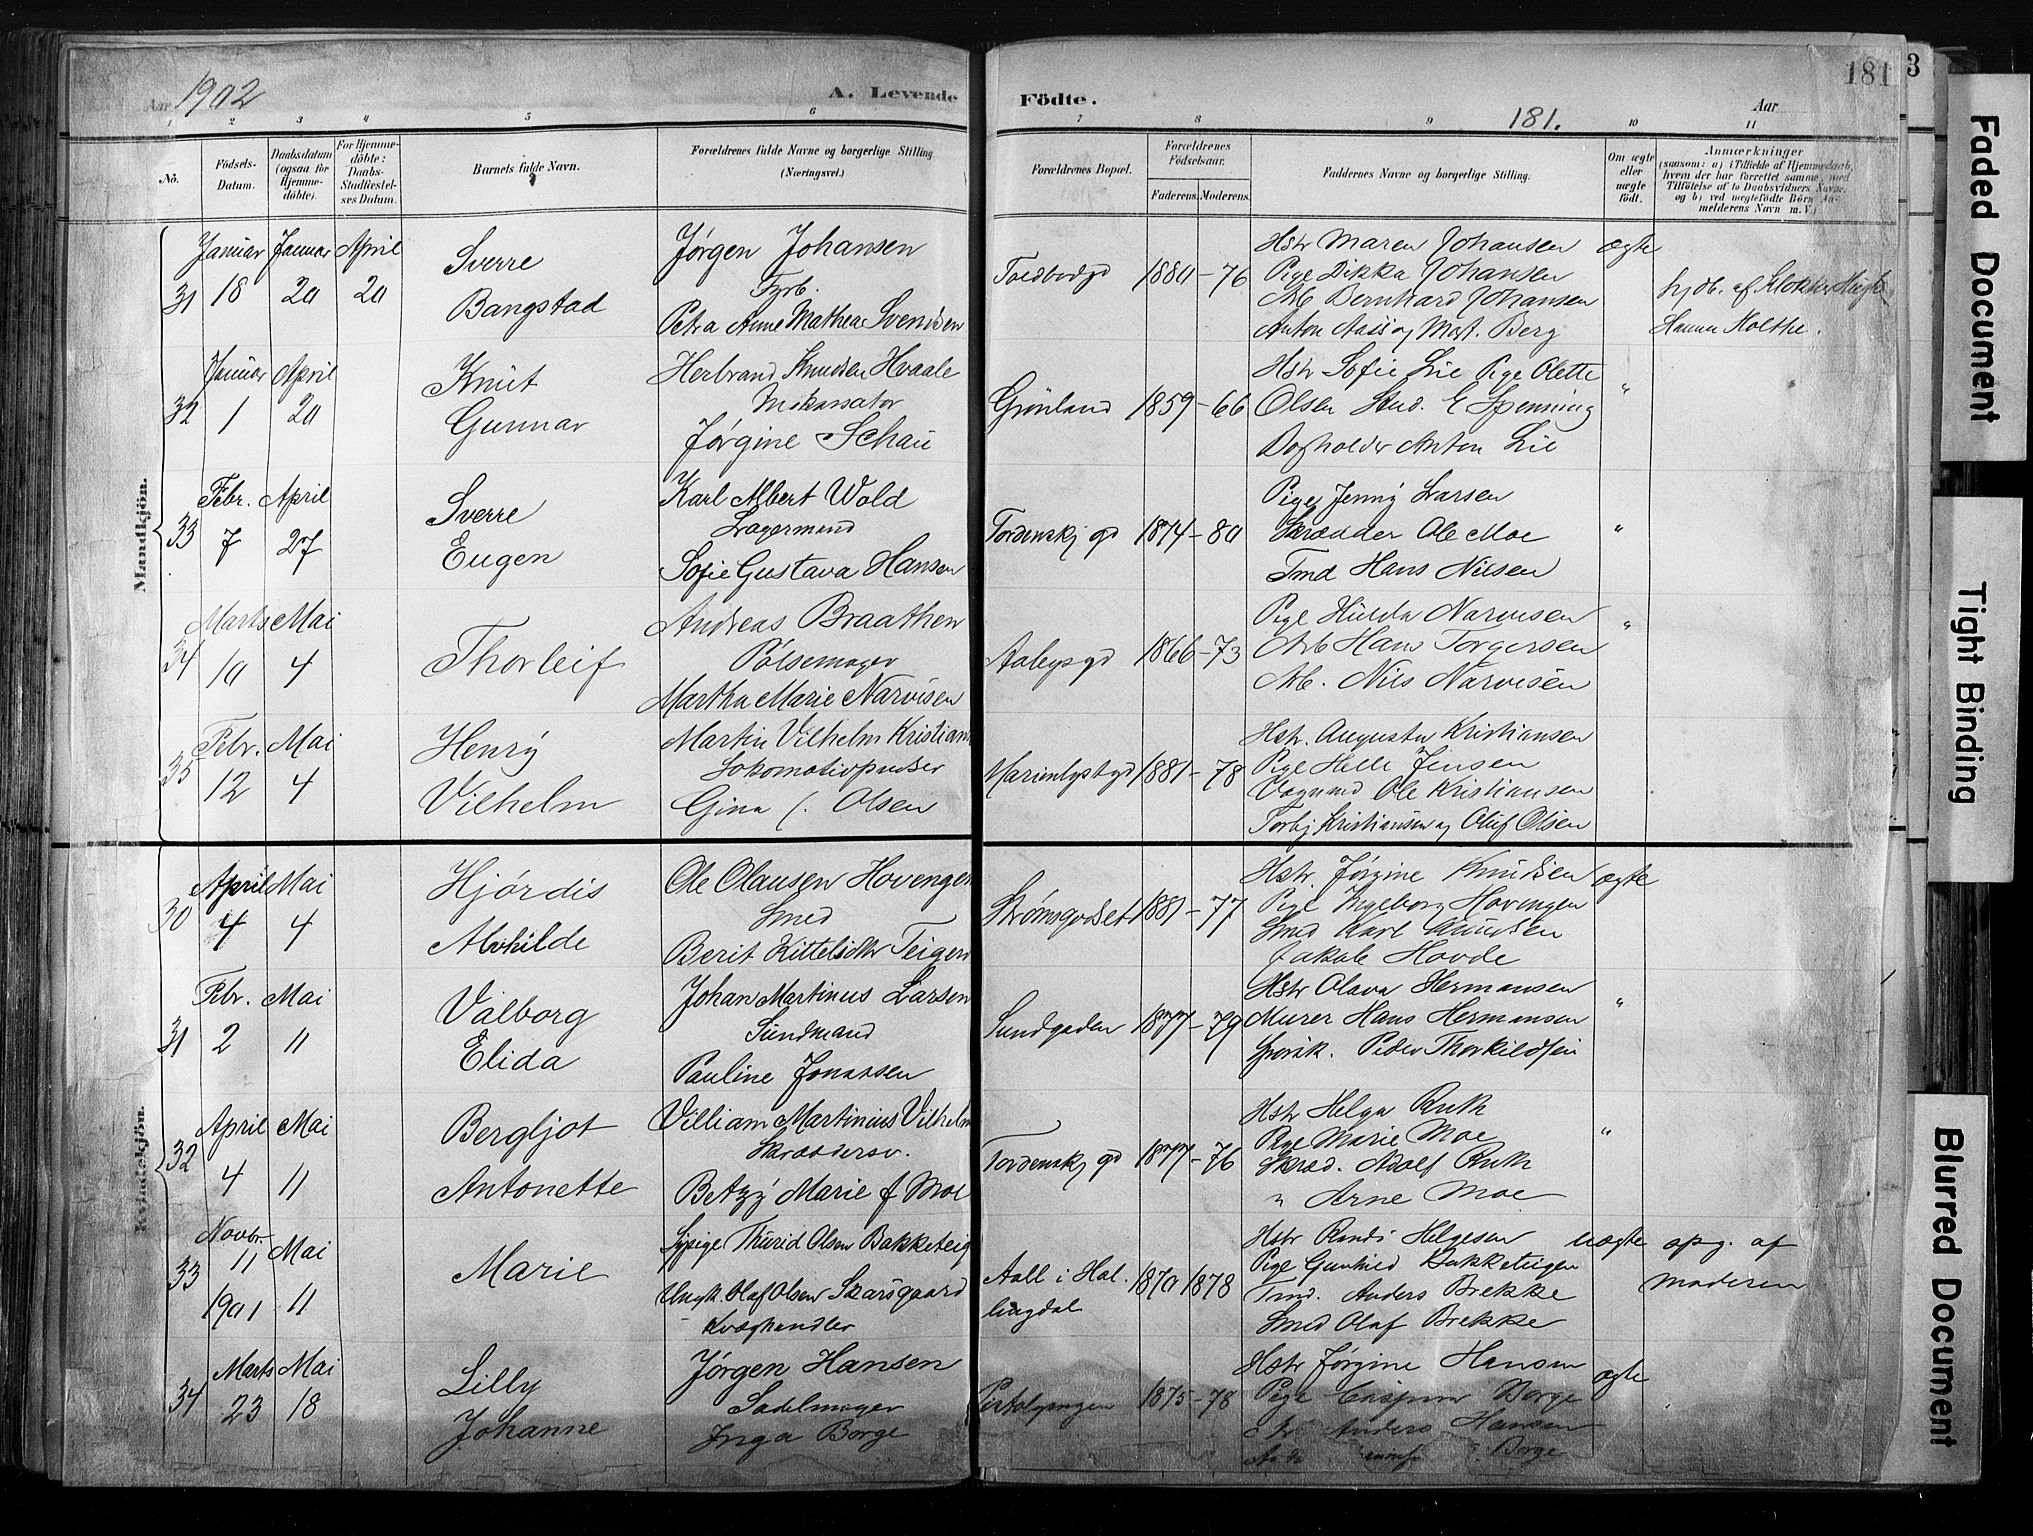 Aar 1902
A. Levende
Födte.
181.
Aar
181
3
1 2 3 4 5 6 7 8 9 10 11
No.
Födsels-Datum.
Daabsdatum (ogsaa for Hjemme-döbte).
For Hjemme-döbte: Daabs-Stadfæstel-ses Datum.
Barnets fulde Navn.
Forældrenes fulde Navne og borgerlige Stilling (Næringsvei.)
Forældrenes Bopæl.
Forældrenes Födselsaar.
Faderens. Moderens.
Faddernes Navne og borgerlige Stilling.
Om ægte eller uægte födt.
Anmærkninger
(saasom: a) i Tilfælde af Hjemmedaab, hvem der har forrettet samme, med Tilföielse af to Daabsvidners Navne, og b) ved uægtefödte Börn An-melderens Navn m. V.)
Mandkjön.
31
Januar 18
Januar 20
April 20
Sverre
Bangstad
Jørgen Johansen
Fyrb.
Petra Anne Mathea Svendsen
Toldbodgd
1880 - 76
Hstr Maren Johansen
Pige Dikka Johansen
Arb Bernhard Johansen
Anton Aass og Mart. Berg
ægte
hjdb. af Klokker
Hanna Holthe.
32
Januar 1
April 20
Knut
Gunnar
Herbrand Knudsen Hvaale
Jørgine Schau
Grønland
1859 - 66
Hstr Sofie Lie Pige Olette
Olsen Stud. E Spenning
Bogholder Anton Lie
"
33
Febr. 7
April 27
Sverre
Eugen
Karl Albert Wold
Lagermand
Sofie Gustava Hansen
Tordenskj gd
1874 - 80
Pige Jenny Larsen
Skrædder Ole Moe
Tmd Hans Nilsen
"
34
Marts 10
Mai 4
Thorleif
Andreas Braathen
Pølsemager
Martha Marie Narvesen
Aabygd
1866 - 73
Pige Hulda Narvesen
Arb Hans Torgersen
Arb. Nils Narvesen
"
35
Febr. 12
Mai 4
Henry
Vilhelm
Martin Vilhelm Kristian
Lokomotivpudser
Gina f. Olsen
Marienlystgd
1881 - 78
Hstr. Augusta Kristiansen
Pige Helle Jensen
Vognmd Ole Kristiansen
Torbj Kristiansen og Oluf Olsen
Kvindekjön.
30
April 4
Mai 4
Hjørdis
Alvhilde
Ole Olausen Hovengen
Smed
Berit Kittelsdtr Teigen
Strømsgodset
1881 - 77
Hstr. Jørgine Knudsen
Pige Ingeborg Hovengen
Smed Karl Knudsen
Jakob Hovde
ægte
31
Febr. 2
Mai 11
Valborg
Elida
Johan Martinus Larsen
Sundmand
Pauline Jonassen
Sundgaden
1877 - 79
Hstr Olava Hermansen
Murer Hans Hermansen
Peder Thorkildsen
"
32
April 4
Mai 11
Bergljot
Antonette
Villiam Martinius Vilhelm
Skræddersv.
Betzy Marie f Moe
Tordenskj gd
1877 - 76
Hstr Helga Ruth
Pige Marie Moe
Skræd. Adolf Ruth
" Arne Moe
"
33
Novbr. 11 1901
Mai 11
Marie
Sypige Thurid Olsen Bakketeig
Ungk. Olaf Olsen Skarsgaard
Kvæghandler
Aall i Hal-
lingdal
1870 1878
Hstr Randi Helgesen
Pige Gunhild Bakketeigen
Tmd. Anders Brekke
Smed Olaf Brekke
uægte
opg. af
moderen
34
Marts 23
Mai 18
Lilly
Johanne
Jørgen Hansen
Sadelmager
Inga Borge
Pistolgangen
1875 - 78
Hstr Jørgine Hansen
Pige Borge
Anders Hansen
Borge
ægte
Faded Document
Tight Binding
Blurred Document